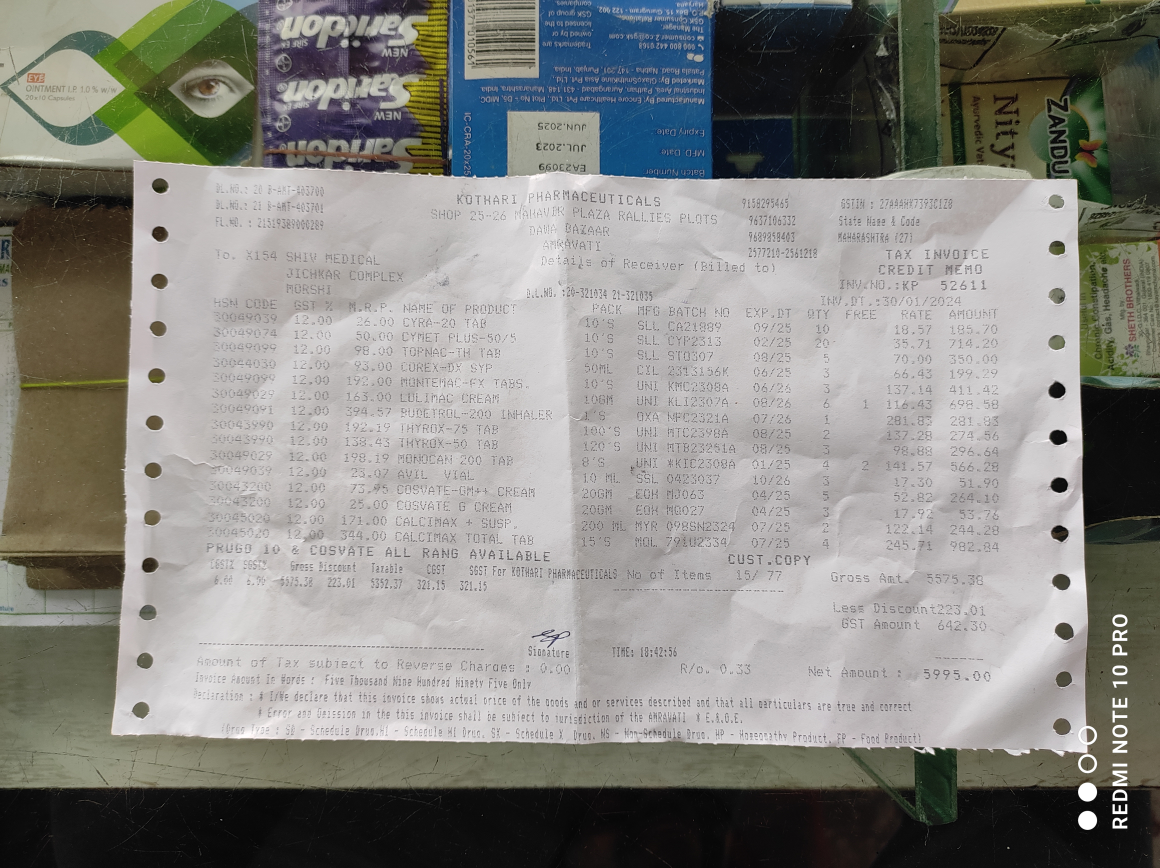 EYE
OINTMENT I.P. 1.0 % w/w
20×10 Capsules
NEW
Saridon
Saridon
NEW
Saridon
JUN.2025
JUL.2023
EA23099
Expiry Date
MFD. Date
Batch Number
ZANDU
Nity
SHETH BROTHERS
DL.NO.: 20 B-AMT-403700
DL.NO.: 21 B-AMT-403701
FL.NO.: 21519389000289
KOTHARI PHARMACEUTICALS
SHOP 25-26 MAHAVIR PLAZA RALLIES PLOTS
DAWA BAZAAR
AMRAVATI
9158295465
9637106332
9689858403
2577210-2561218
GSTIN : 27AAAHK7393C1Z8
State Name & Code
MAHARASHTRA (27)
To. X154 SHIV MEDICAL
JICHKAR COMPLEX
MORSHI
Details of Receiver (Billed to)
D.L.NO.:20-321034 21-321035
TAX INVOICE
CREDIT MEMO
INV.NO.:KP 52611
INV.DT.:30/01/2024
HSN CODE GST % M.R.P. NAME OF PRODUCT PACK MFG BATCH NO EXP.DT QTY FREE RATE AMOUNT
30049039 12.00 26.00 CYRA-20 TAB 10'S SLL CA21889 09/25 10 18.57 185.70
30049074 12.00 50.00 CYMET PLUS-50/5 10'S SLL CYP2313 02/25 20 35.71 714.20
30049099 12.00 98.00 TOPNAC-TH TAB 10'S SLL ST0307 08/25 5 70.00 350.00
30044030 12.00 93.00 COREX-DX SYP 50ML CIL 2313156K 06/25 3 66.43 199.29
30049099 12.00 192.00 MONTEMAC-FX TABS. 10'S UNI KMC2308A 06/26 3 137.14 411.42
30049029 12.00 163.00 LULIMAC CREAM 10GM UNI KLI2307A 08/26 6 1 116.43 698.58
30049091 12.00 394.57 BUDETROL-200 INHALER 1'S OXA NFC2321A 07/26 1 281.83 281.83
30043990 12.00 192.19 THYROX-75 TAB 100'S UNI MTC2398A 08/25 2 137.28 274.56
30043990 12.00 138.43 THYROX-50 TAB 120'S UNI MTB23251A 08/25 3 98.88 296.64
30049029 12.00 198.19 MONOCAN 200 TAB 8'S UNI *KIC2308A 01/25 4 2 141.57 566.28
30049039 12.00 23.07 AVIL VIAL 10 ML SSL 0423037 10/26 3 17.30 51.90
30043200 12.00 73.95 COSVATE-GM++ CREAM 20GM EOH MJ063 04/25 5 52.82 264.10
30043200 12.00 25.00 COSVATE G CREAM 20GM EOH MQ027 04/25 3 17.92 53.76
30045020 12.00 171.00 CALCIMAX + SUSP. 200 ML MYR 098SN2324 07/25 2 122.14 244.28
30045020 12.00 344.00 CALCIMAX TOTAL TAB 15'S MOL 791U2334 07/25 4 245.71 982.84
PRUGO 10 & COSVATE ALL RANG AVAILABLE
CUST.COPY
CGST% SGST% Gross Discount Taxable CGST SGST For KOTHARI PHARMACEUTICALS No of Items 15/ 77 Gross Amt. 5575.38
6.00 6.00 5575.38 223.01 5352.37 321.15 321.15
Less Discount223.01
GST Amount 642.30
Signature
TIME: 18:42:56
Amount of Tax subject to Reverse Charges : 0.00
R/o. 0.33 Net Amount : 5995.00
Invoice Amount In Words : Five Thousand Nine Hundred Ninety Five Only
Declaration : # I/We declare that this invoice shows actual price of the goods and or services described and that all particulars are true and correct
# Error and Omission in the this invoice shall be subject to jurisdiction of the AMRAVATI * E.&.O.E.
(Drug Type : SD - Schedule Drug,H1 - Schedule H1 Drug, SX - Schedule X Drug, NS - Non-Schedule Drug, HP - Homeopathy Product, FP - Food Product)
REDMI NOTE 10 PRO